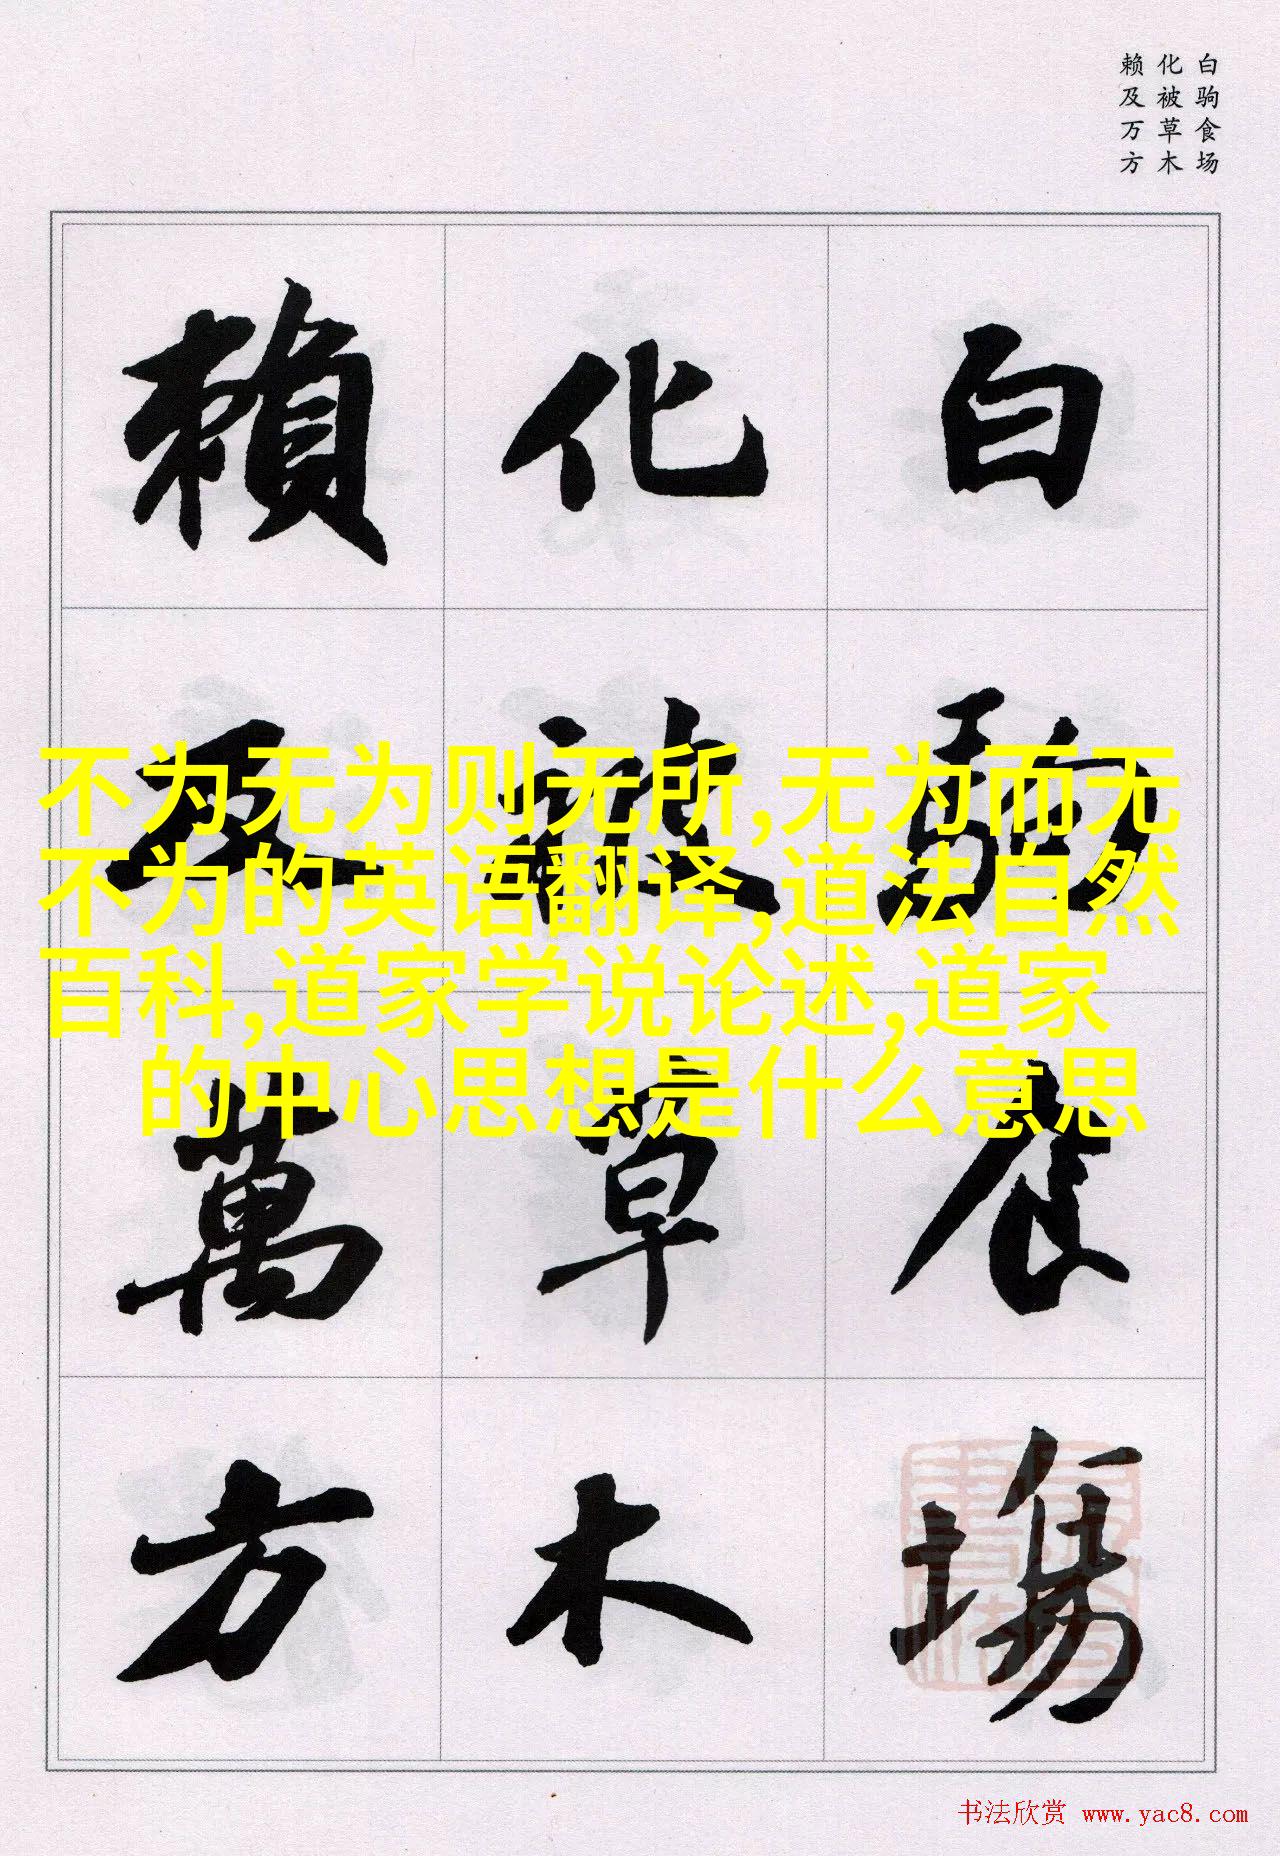 白驹食场
化被草木
赖及万方
白駒食場
化被草木
賴及萬方
不为无为则无所,无为而无
不为的英语翻译,道法自然
百科,道家学说论述,道家
的中心思想是什么意思
书法欣赏 www.yac8.com